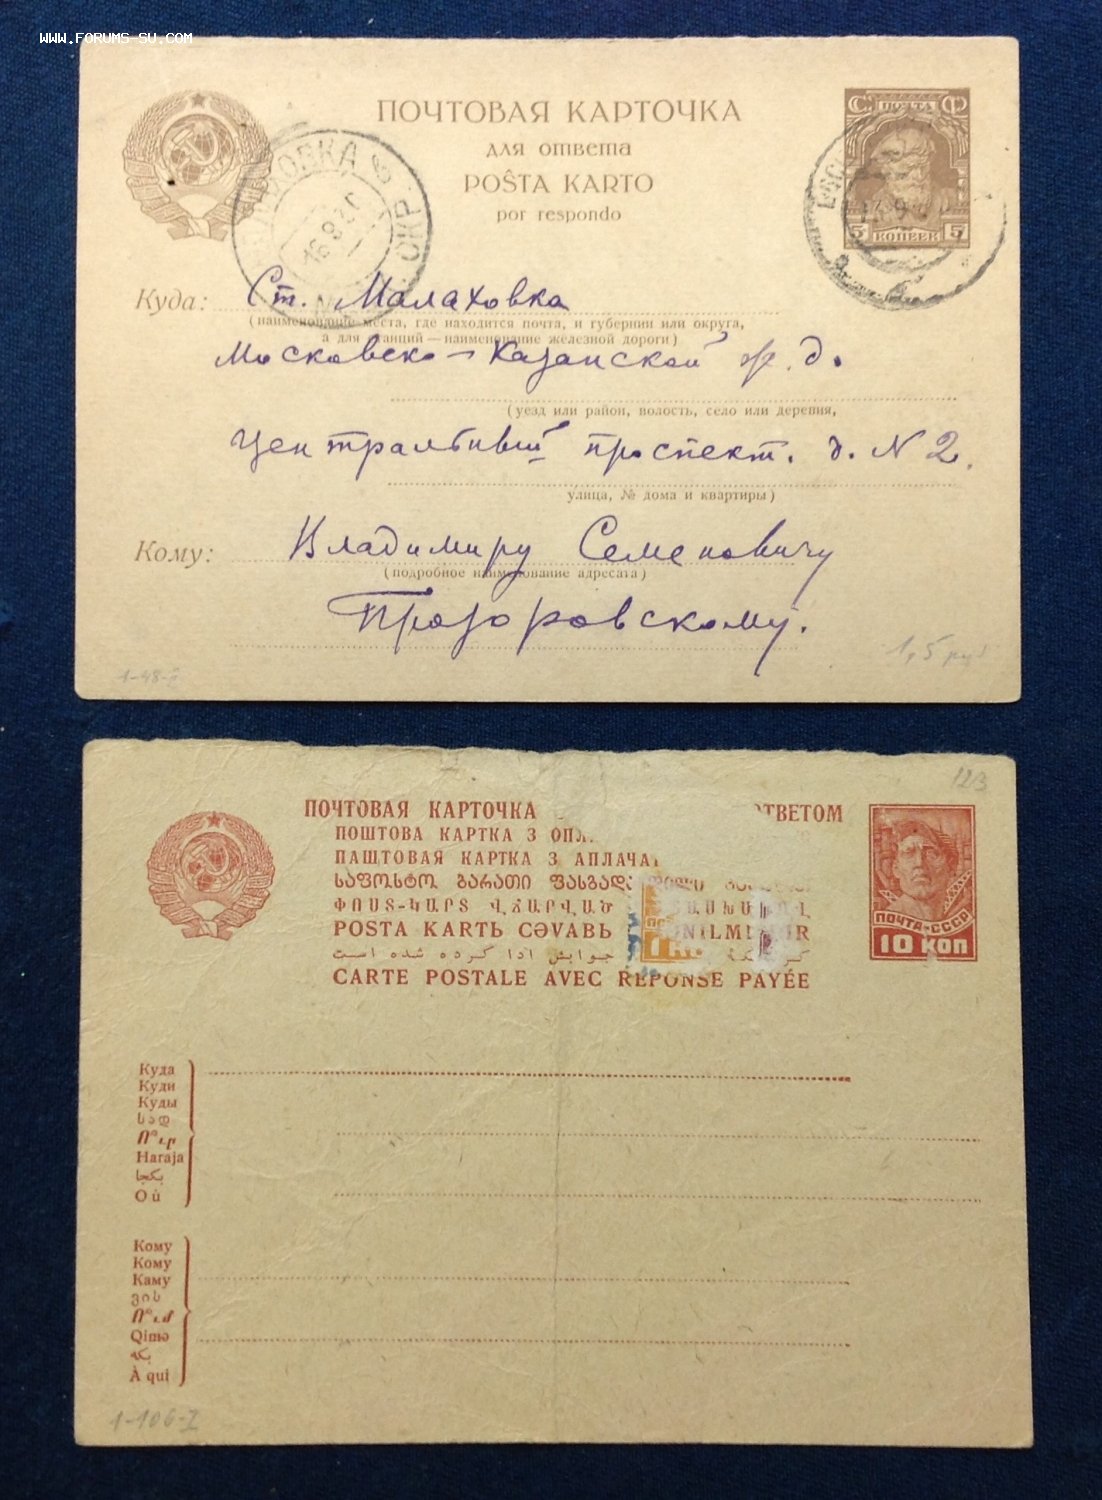 WWW.FORUMS-SU.COM
ПОЧТОВАЯ КАРТОЧКА
для ответа
POŜTA KARTO
por respondo
С ПОЧТА Ф
5 КОПЕЕК 5
16 9 30
Куда: Ст. Малаховка
(наименование места, где находится почта, и губернии или округа,
а для станций—наименование железной дороги)
Московско-Казанской ж. д.
(уезд или район, волость, село или деревня,
Центральный проспект. д. N 2.
улица, № дома и квартиры)
Кому: Владимиру Семеновичу
(подробное наименование адресата)
Прозоровскому.
1,5 руб
1-48-I
123
ПОЧТОВАЯ КАРТОЧКА ОТВЕТОМ
ПОШТОВА КАРТКА З ОПЛ
ПАШТОВАЯ КАРТКА З АПЛАЧА
ՓՈՍՏ-ԿԱՐՏ ՎՃԱՐՎԱԾ
POSTA KARTЬ CƏVAВЬ
جوابش ادا كرده شده است
CARTE POSTALE AVEC RÉPONSE PAYÉE
ПОЧТА-СССР
10 КОП
Куда
Куди
Куды
სად
Ո՞ւր
Haraja
بكجا
Où
Кому
Кому
Каму
ვის
Ո՞ւմ
Qimə
بكه
À qui
1-106-I